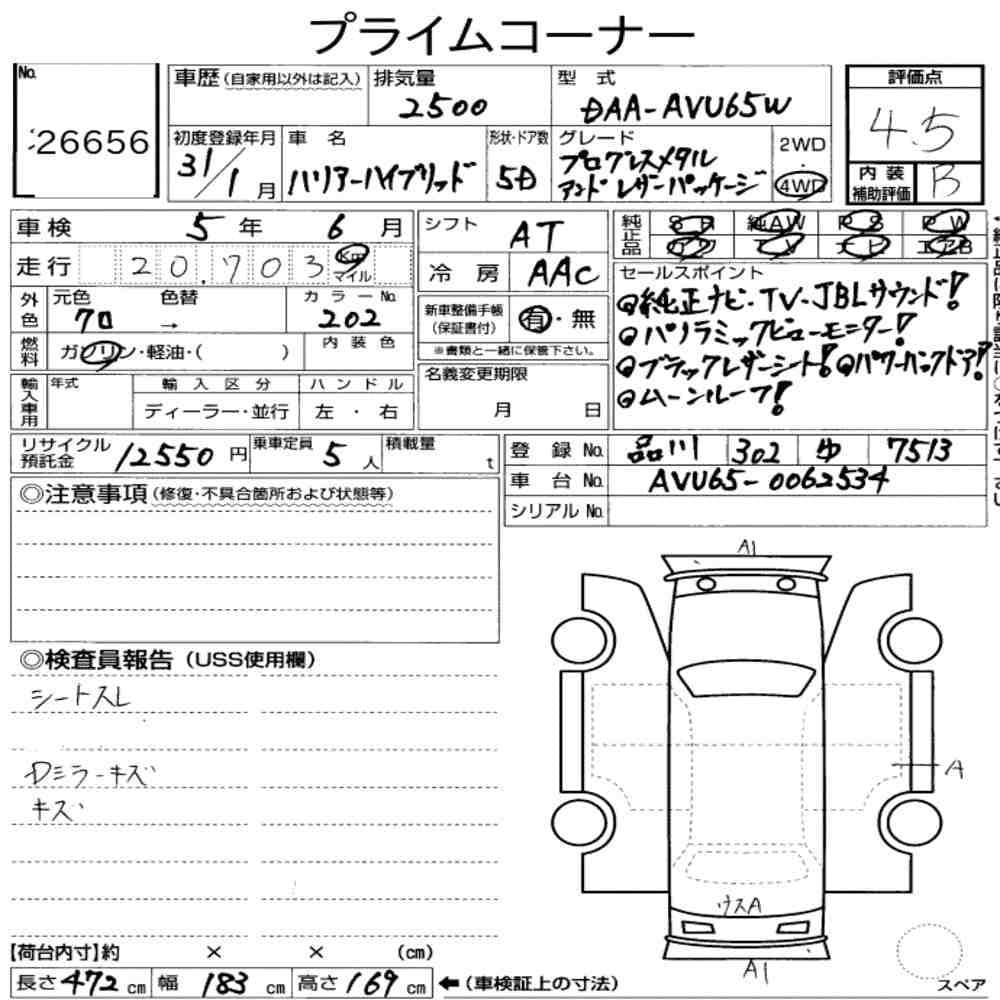 プライムコーナー
No.
26656
車歴 (自家用以外は記入)
排気量
2500
型式
DAA-AVU65W
評価点
4.5
初度登録年月
31/1月
車名
ハリアーハイブリッド
形状・ドア数
5D
グレード
プログレスメタル
アンドレザーパッケージ
2WD
・
4WD
内装
補助評価
B
車検 5年 6月
走行 20,703 Km
マイル
シフト AT
冷房 AAC
純正品
SR 純AW PS PW
カワ TV ナビ エアB
セールスポイント
●純正ナビ・TV・JBLサウンド!
●パノラミックビューモニター!
●ブラックレザーシート! ●パワーバックドア!
●ムーンルーフ!
外色
元色 色替 カラーNo.
クロ → 202
燃料
ガソリン・軽油・( )
内装色
新車整備手帳
(保証書付)
有・無
※書類と一緒に保管下さい。
輸入車用
年式
輸入区分
ハンドル
ディーラー・並行
左・右
名義変更期限
月 日
リサイクル
預託金
12550円
乗車定員 5人
積載量 t
登録No. 品川 302 ゆ 7513
車台No. AVU65-0062534
シリアルNo.
◎注意事項(修復・不具合箇所および状態等)
◎検査員報告(USS使用欄)
シートスレ
Dミラーキズ
キズ
A1
A
ウスA
A1
スペア
【荷台内寸】約 × × (cm)
長さ472cm 幅183cm 高さ169cm ←(車検証上の寸法)